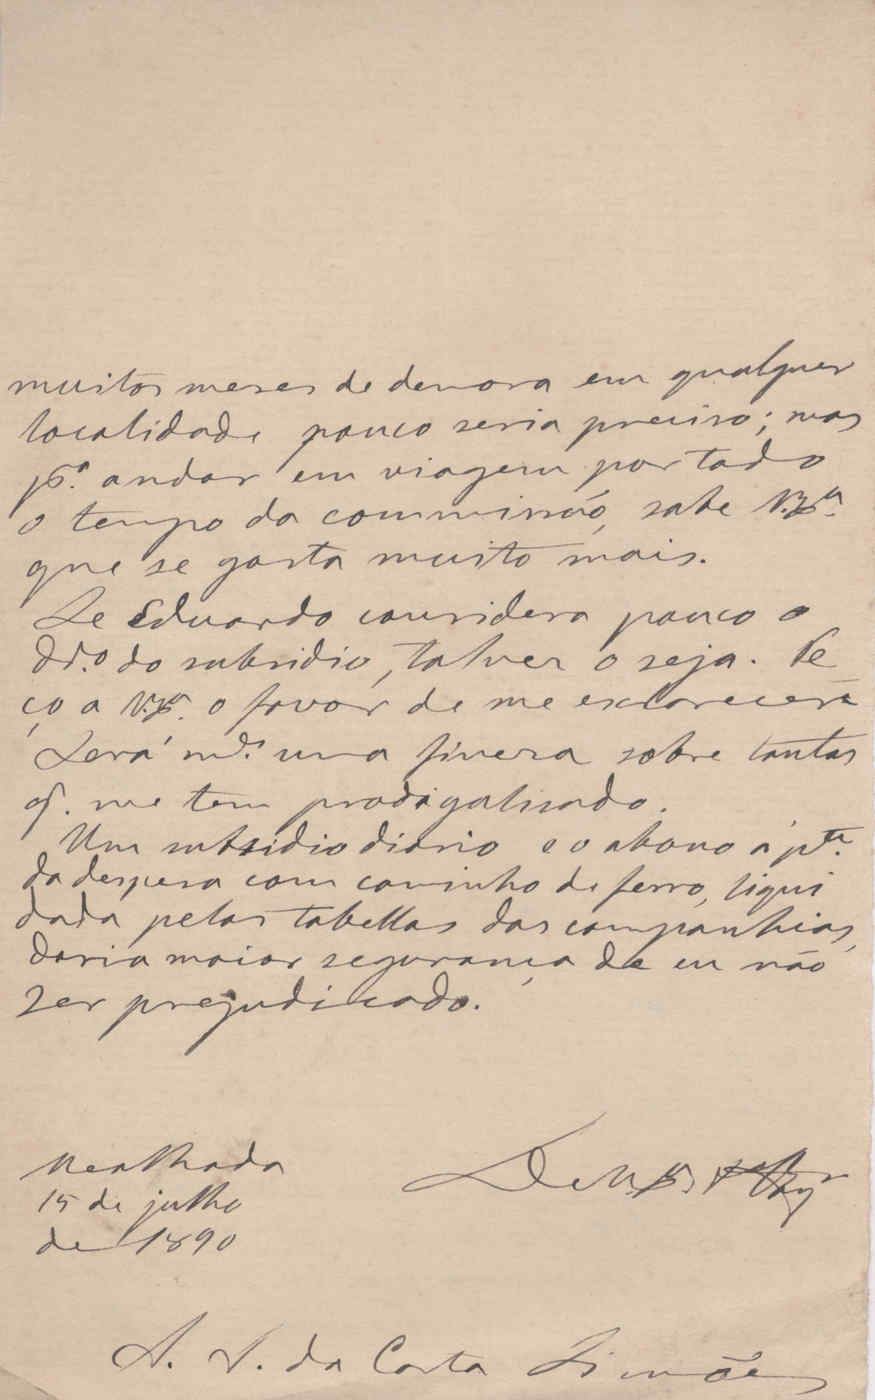 muitos meses de demora em qualquer
localidade pouco seria preciso; mas
pª. andar em viagem por todo
o tempo da commissão, sabe V. Exª.
que se gasta muito mais.
Se Eduardo considera pouco o
dº do subsidio, talvez o seja. Pe
ço a V. Exª. o favor de me esclarecer.
Será mª. uma fineza sobre tantas
q. me tem prodigalisado.
Um subsidio diario e o abono á pte.
da despesa com caminho de ferro, liqui
dada pelas tabellas das companhias,
daria maior segurança de eu não
ser prejudicado.
Mealhada
15 de julho
de 1890
De V. Exª.
A. A. da Costa Simões